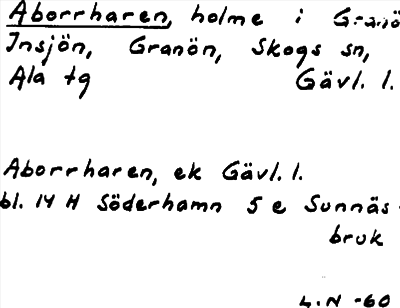 Aborrharen, holme i Granö
Insjön, Granön, Skogs sn,
Ala tg Gävl. l.
Aborrharen, ek Gävl. l.
bl. 14 H Söderhamn 5 e Sunnäs-
bruk
L.N -60